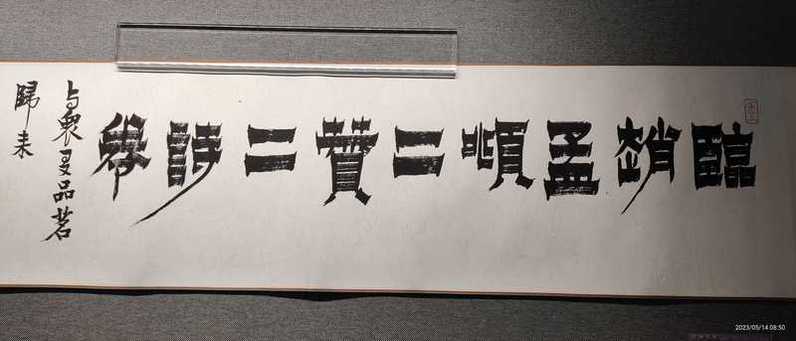 臨趙孟頫二贊二詩卷
与衆叟品茗
歸来
2023/05/14 08:50